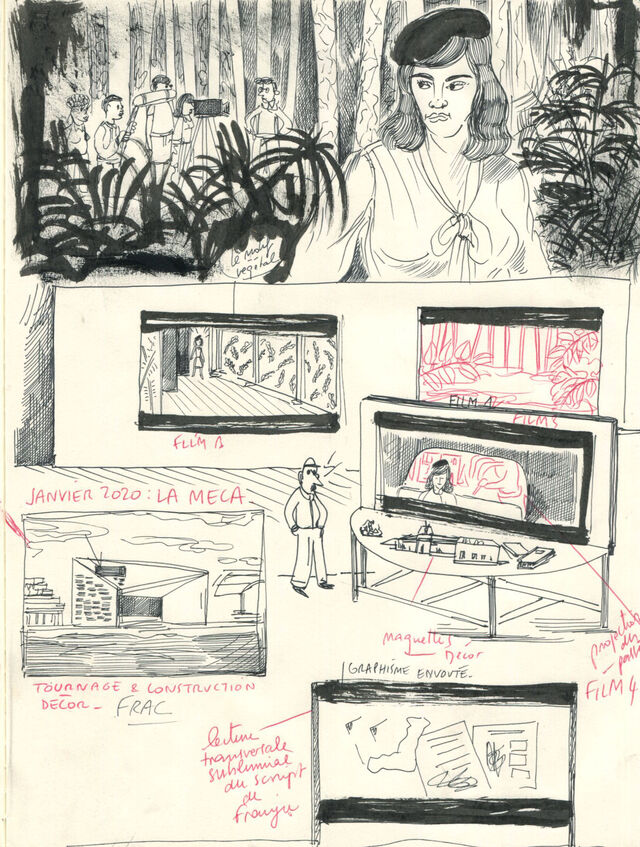 le noir
végétal
FILM A
FILM 2
FILM 3
JANVIER 2020 : LA MECA
maquettes
Décor
projection
du
FILM 4
GRAPHISME ENVOUTE.
TOURNAGE & CONSTRUCTION
DÉCOR_ FRAC
lecture
transversale
subliminal
du script
de
Franju